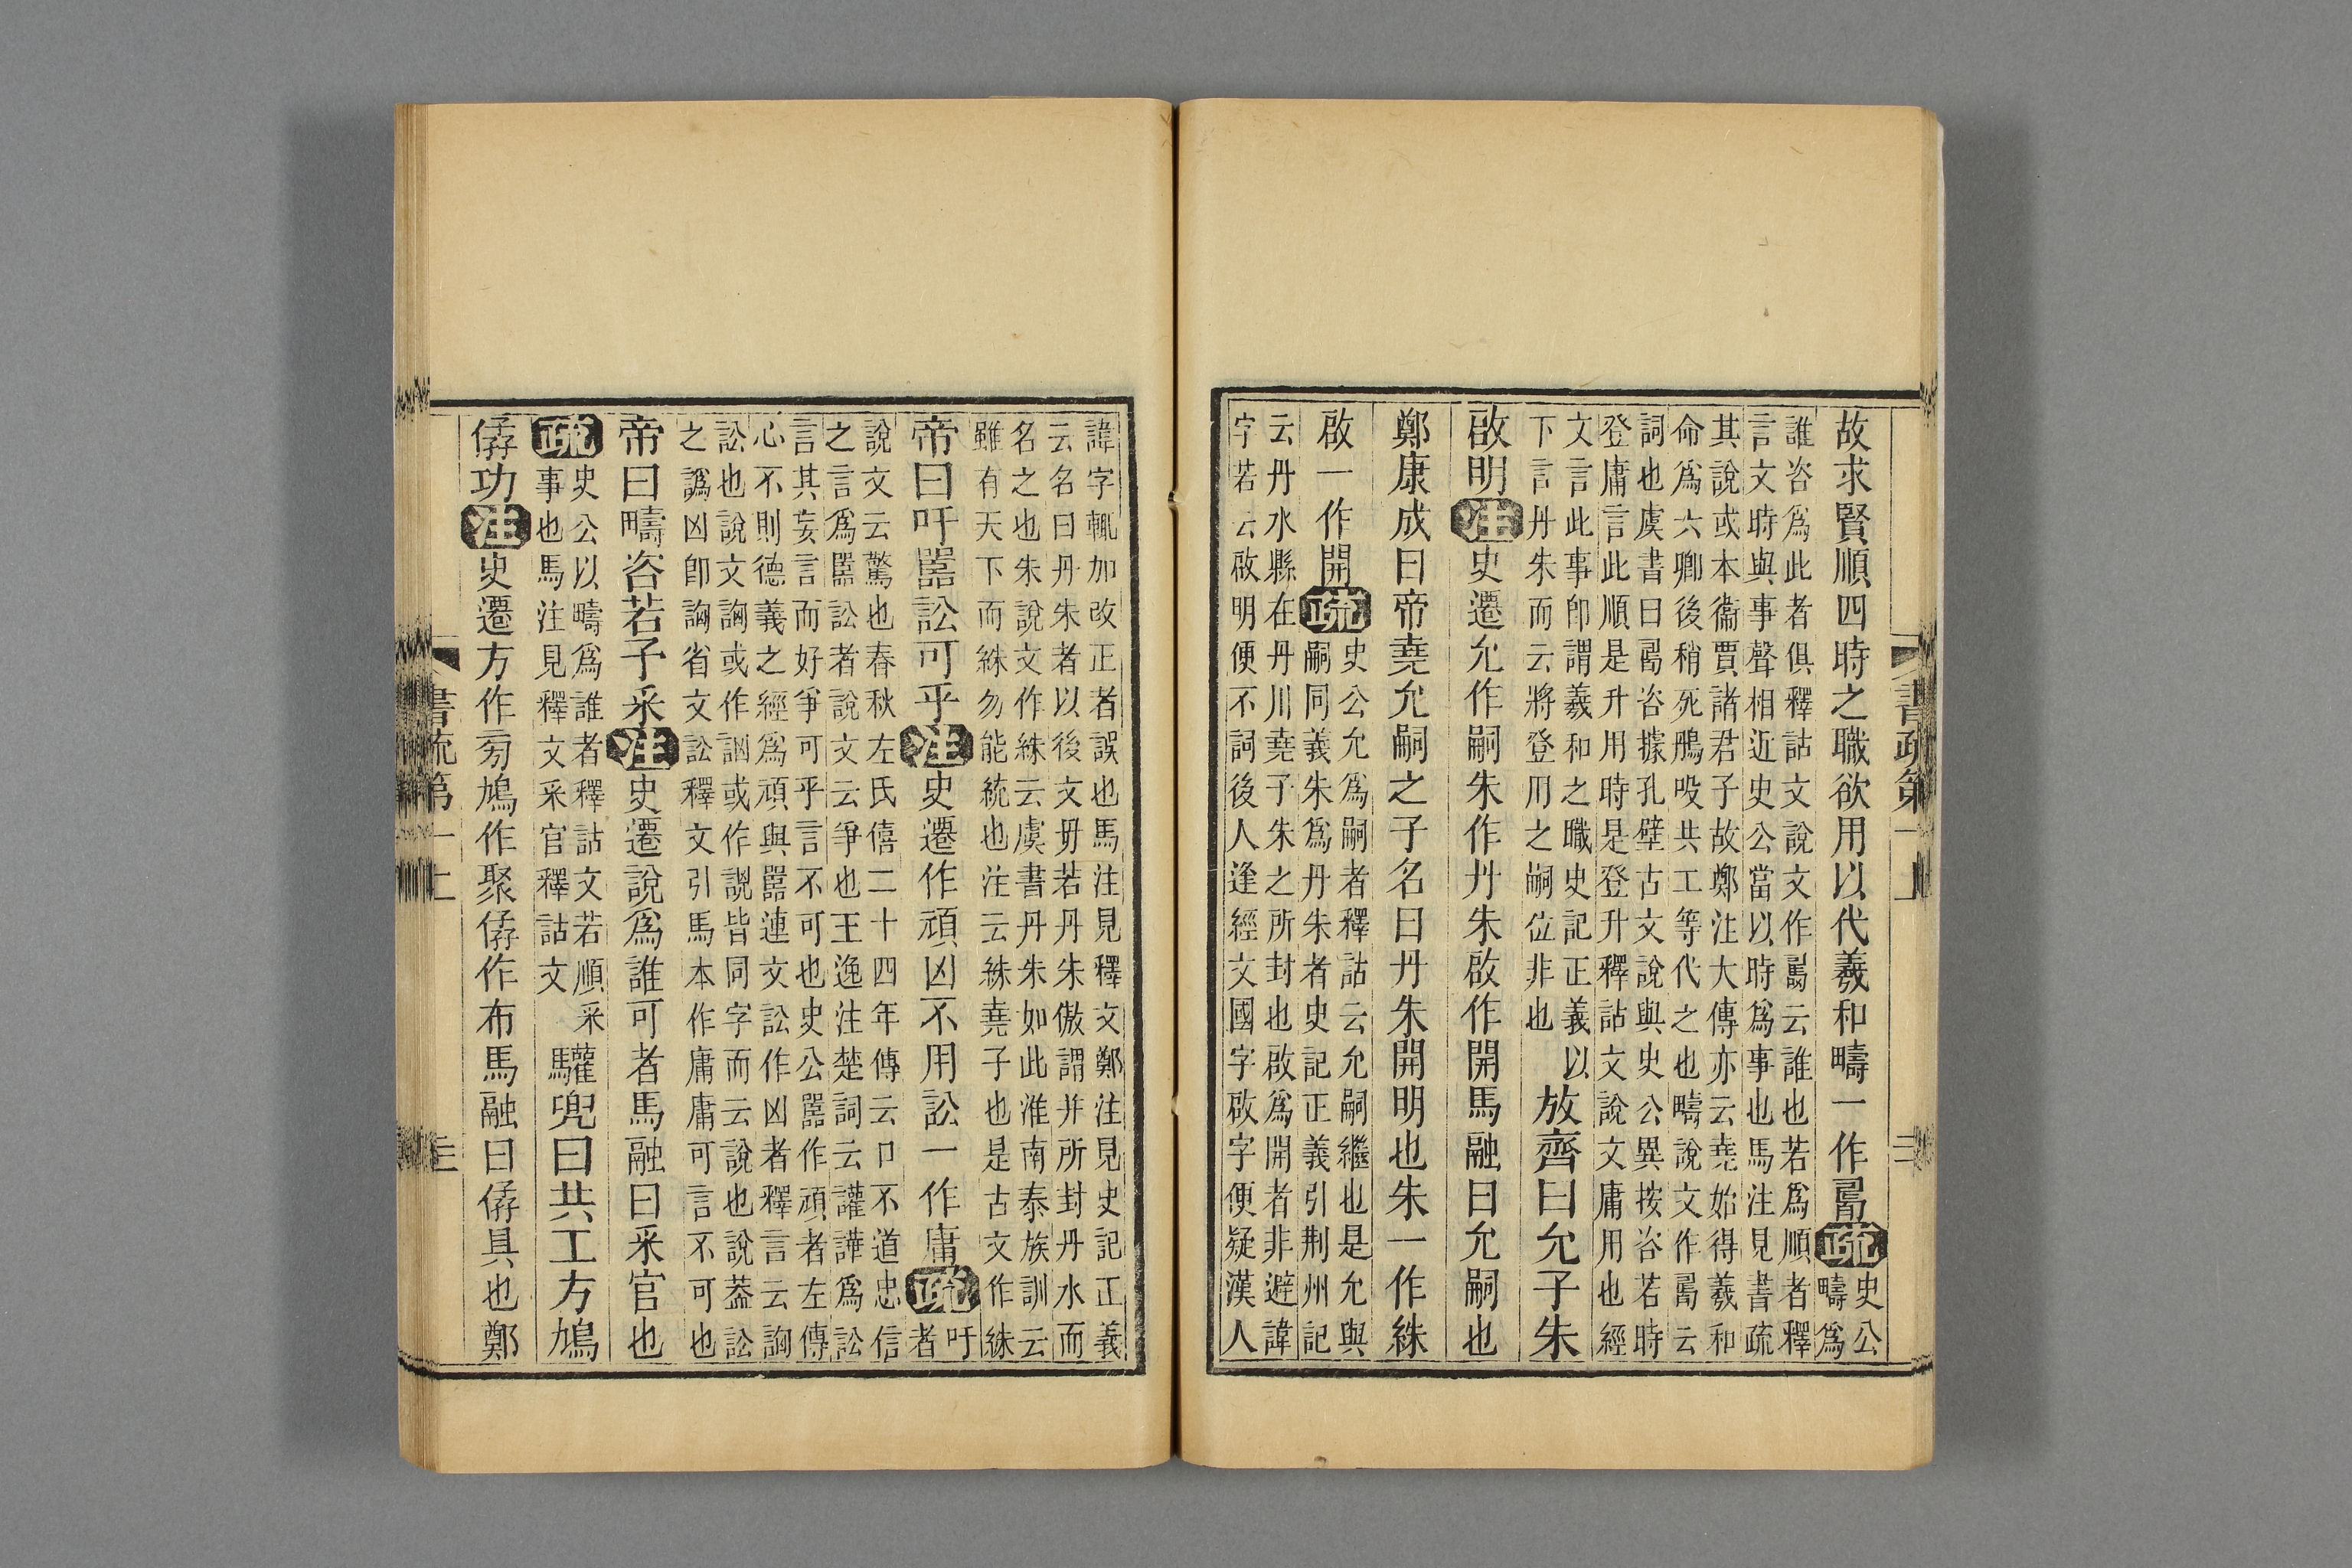 故求賢順四時之職欲用以代羲和疇一作𠷎疏史公
疇爲
誰咨爲此者俱釋詁文說文作𠷎云誰也若爲順者釋
言文時與事聲相近史公當以時爲事也馬注見書疏
其說或本衞賈諸君子故鄭注大傳亦云堯始得羲和
命爲六卿後稍死鴅吺共工等代之也疇說文作𠷎云
詞也虞書曰𠷎咨據孔壁古文說與史公異按咨若時
登庸言此順是升用時是登升釋詁文說文庸用也經
文言此事卽謂羲和之職史記正義以
下言丹朱而云將登用之嗣位非也
放齊曰允子朱
啟明注史遷允作嗣朱作丹朱啟作開馬融曰允嗣也
鄭康成曰帝堯允嗣之子名曰丹朱開明也朱一作絑
啟一作開疏史公允爲嗣者釋詁云允嗣繼也是允與
嗣同義朱爲丹朱者史記正義引荆州記
云丹水縣在丹川堯子朱之所封也啟爲開者非避諱
字若云啟明便不詞後人逢經文國字啟字便疑漢人
書疏第一上
二
諱字輒加改正者誤也馬注見釋文鄭注見史記正義
云名曰丹朱者以後文毋若丹朱傲謂幷所封丹水而
名之也朱說文作絑云虞書丹朱如此淮南泰族訓云
雖有天下而絑勿能統也注云絑堯子也是古文作絑
帝曰吁嚚訟可乎注史遷作頑凶不用訟一作庸疏吁
者
說文云驚也春秋左氏僖二十四年傳云口不道忠信
之言爲嚚訟者說文云爭也王逸注楚詞云讙譁爲訟
言其妄言而好爭可乎言不可也史公嚚作頑者左傳
心不則德義之經爲頑與嚚連文訟作凶者釋言云訩
訟也說文訩或作詾或作説皆同字而云說也說葢訟
之譌凶卽詾省文訟釋文引馬本作庸庸可言不可也
帝曰疇咨若予采注史遷說爲誰可者馬融曰采官也
疏史公以疇爲誰者釋詁文若順采
事也馬注見釋文采官釋詁文
驩兜曰共工方鳩
僝功注史遷方作㫄鳩作聚僝作布馬融曰僝具也鄭
書疏第一上